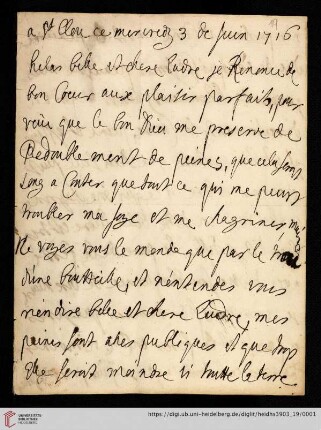 a St Clou ce mercredy 3 de Juin 1716
helas belle et chere Ludre je Renonce de
bon Coeur aux plaisir parfaits, pour
veüe que le bon Dieu me preserve de
Redouble ment de peines, que cela seroit
long a Conter que tout ce qui me peust
troubler ma joye et me chagriner mais
Ne voyes vous le monde que par le trou
d'une boutteille, et n'entendes vous
rien dire belle et chere Ludre, mes
peines sont asses publiques et que trop
Elle serait moindre si toutte la terre
UNIVERSITÄTS-
BIBLIOTHEK
HEIDELBERG
https://digi.ub.uni-heidelberg.de/diglit/heidhs3903_19/0001